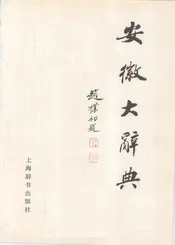 安徽大辭典
趙樸初題
上海辞书出版社